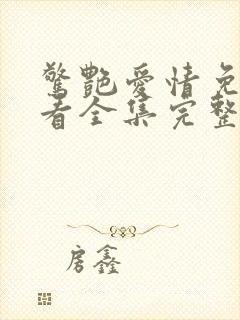 驚艷愛情免
看全集完整
房鑫